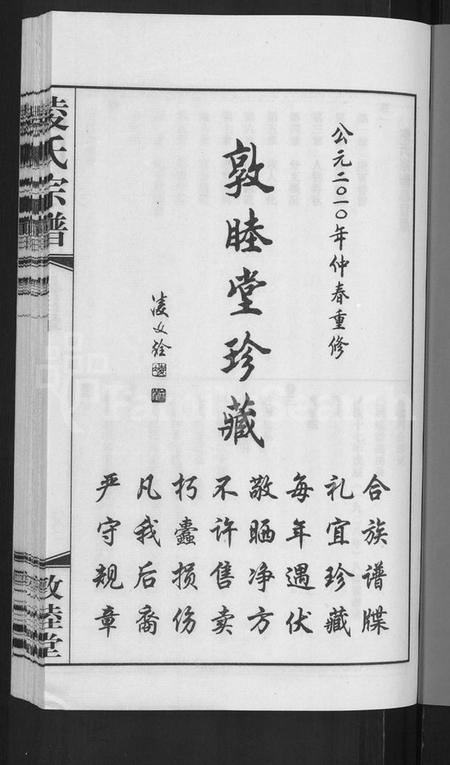 公元二〇一〇年仲春重修
敦睦堂珍藏
合族谱牒
礼宜珍藏
每年遇伏
敬晒净方
不许售卖
朽蠹损伤
凡我后裔
严守规章
凌氏宗谱
敦睦堂
FamilySearch